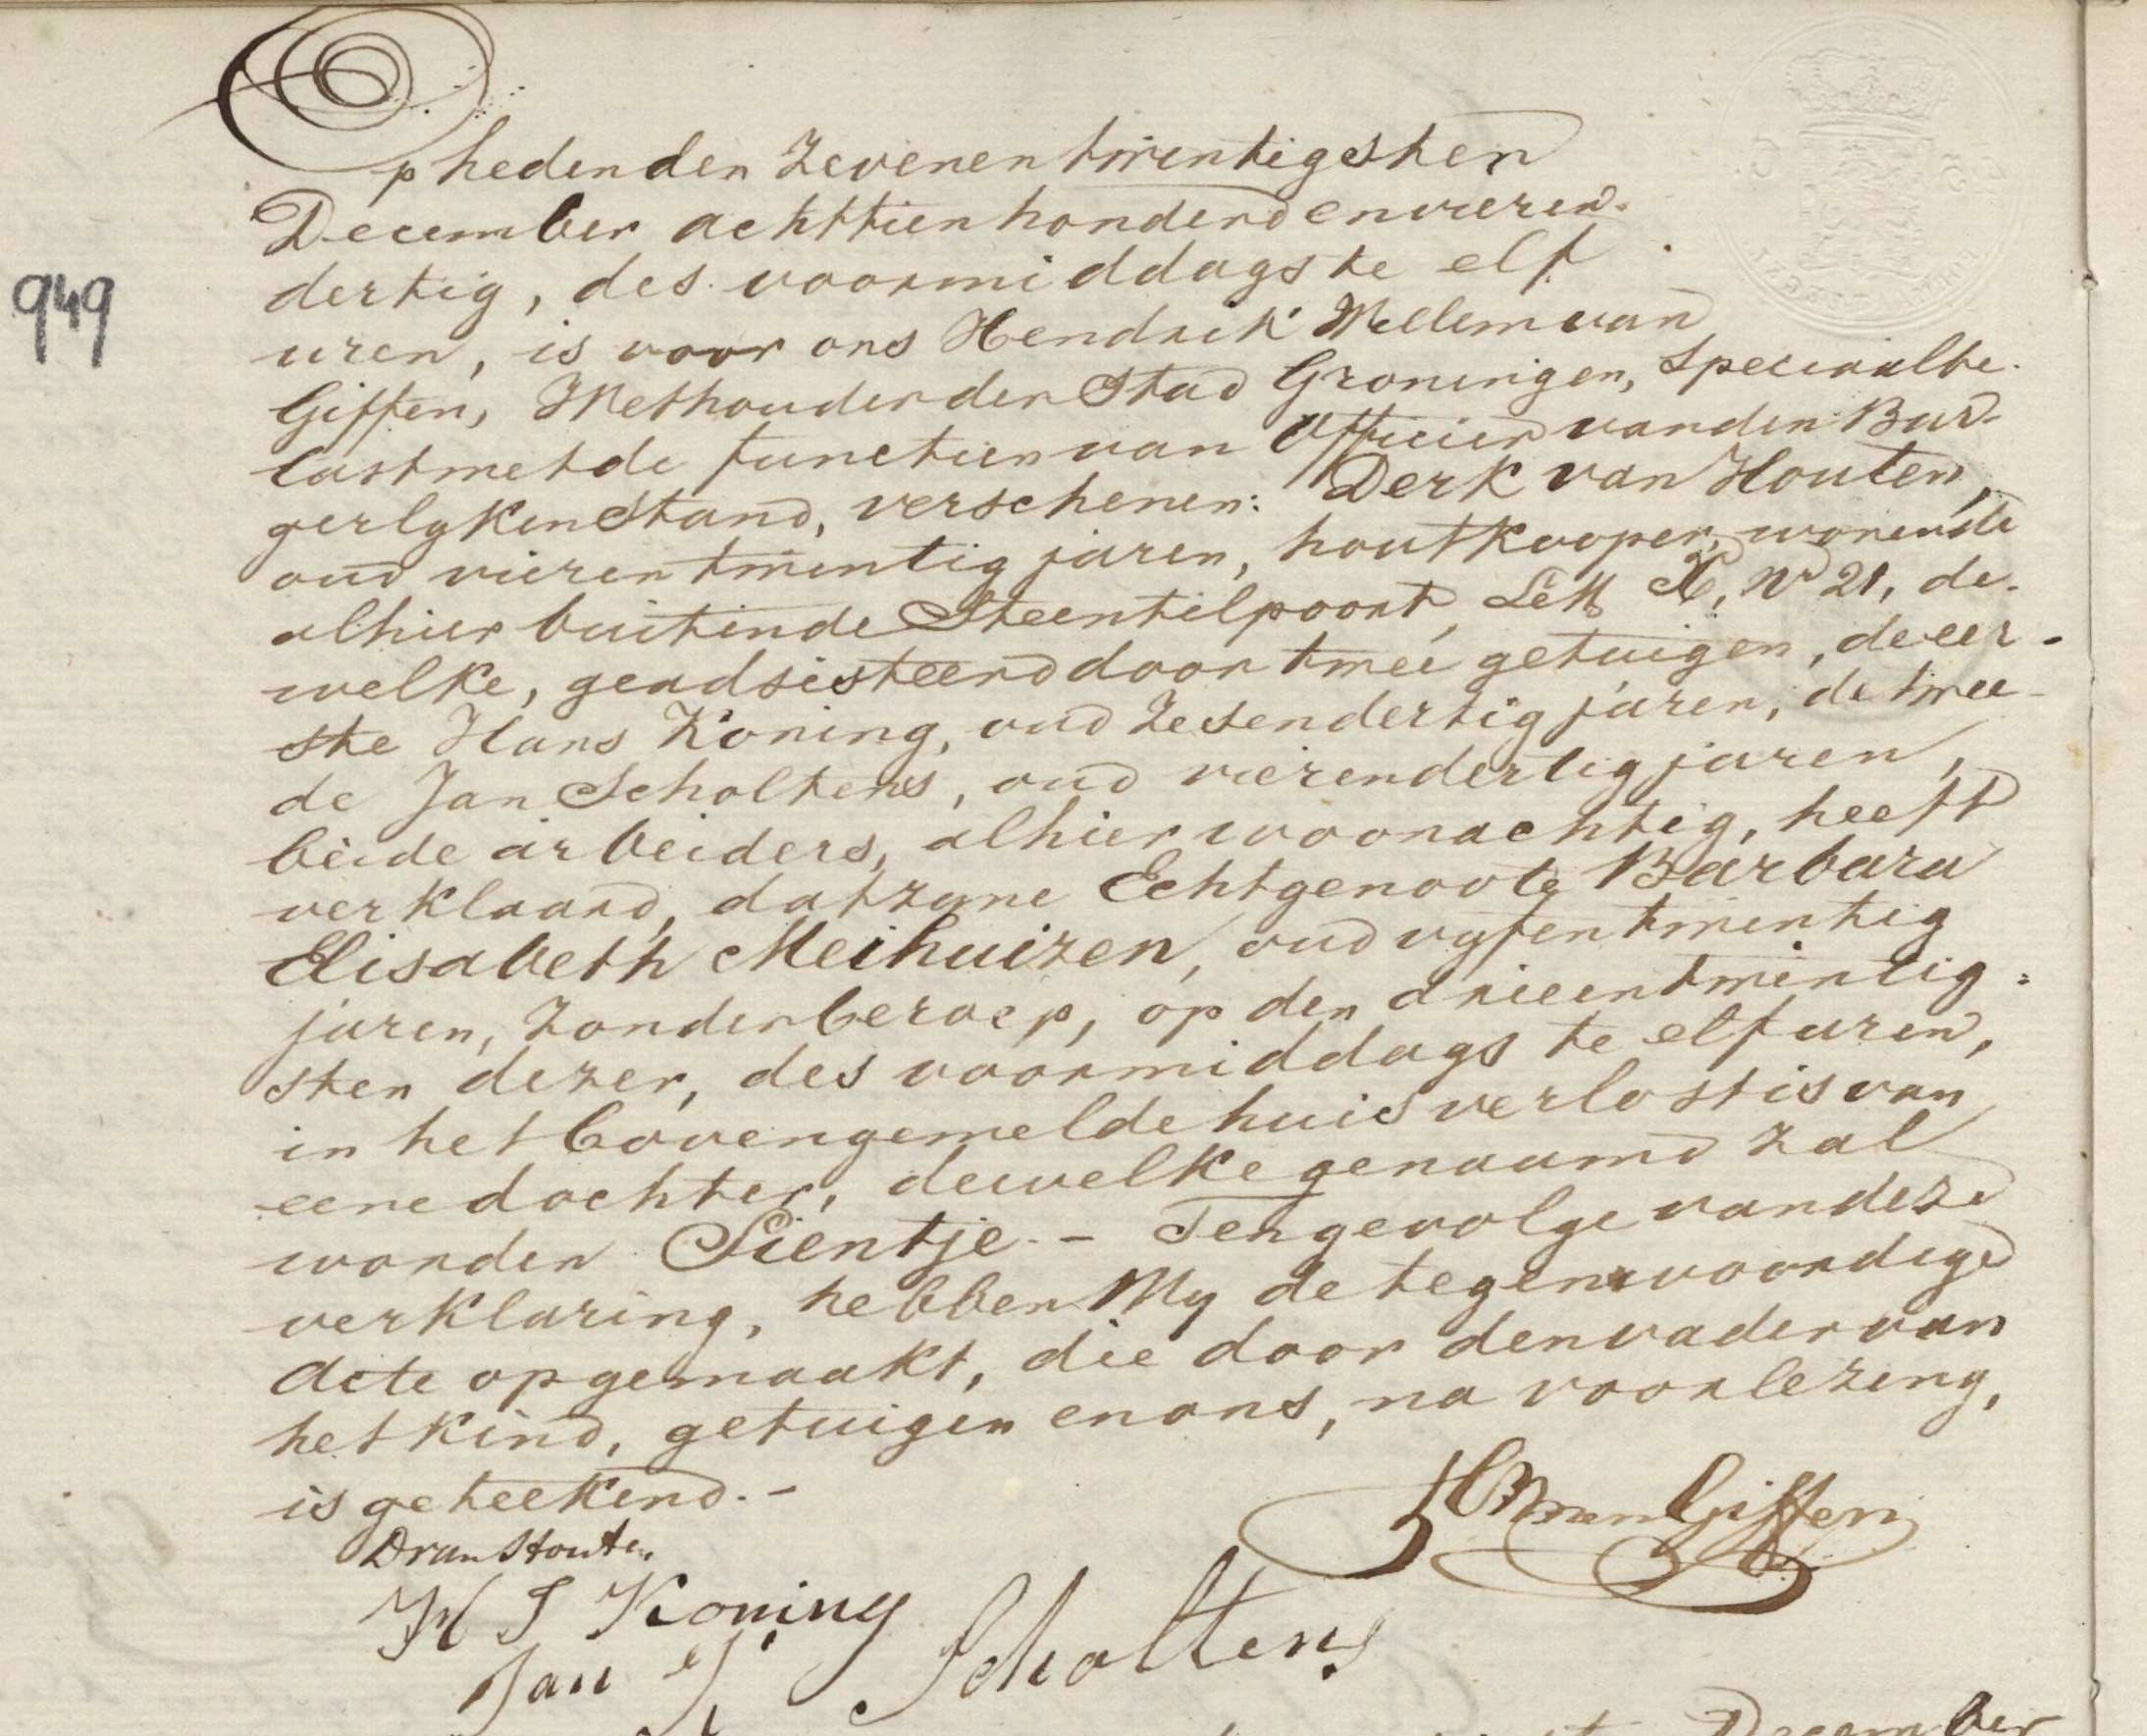 949
Op heden den Zevenentwintigsten
December achttienhonderd en vieren-
dertig, des voormiddags te elf
uren, is voor ons Hendrik Willem van
Giffen, Wethouder der Stad Groningen, Speciaal be-
last met de functien van Officier van den Bur-
gerlyken Stand, verschenen: Derk van Houten,
oud vierentwintig jaren, houtkooper, wonende
alhier buiten de Steentilpoort, Lett X, No 21, de-
welke, geadsisteerd door twee getuigen, de eer-
ste Hans Koning, oud Zesendertig jaren, de twee-
de Jan Scholtens, oud vierendertig jaren,
beide arbeiders, alhier woonachtig, heeft
verklaard, dat zyne Echtgenoote Barbara
Elisabeth Meihuizen, oud vyfentwintig
jaren, Zonder beroep, op den drieentwintig-
sten dezer, des voormiddags te elf uren,
in het bovengemelde huis verlost is van
eene dochter, dewelke genaamd zal
worden Sientje. - Ten gevolge van deze
verklaring, hebben Wy de tegenwoordige
Acte opgemaakt, die door den vader van
het kind, getuigen en ons, na voorlezing,
is geteekend. -
HW van Giffen
D van Houten
H J Koning
Jan J Scholtens
December